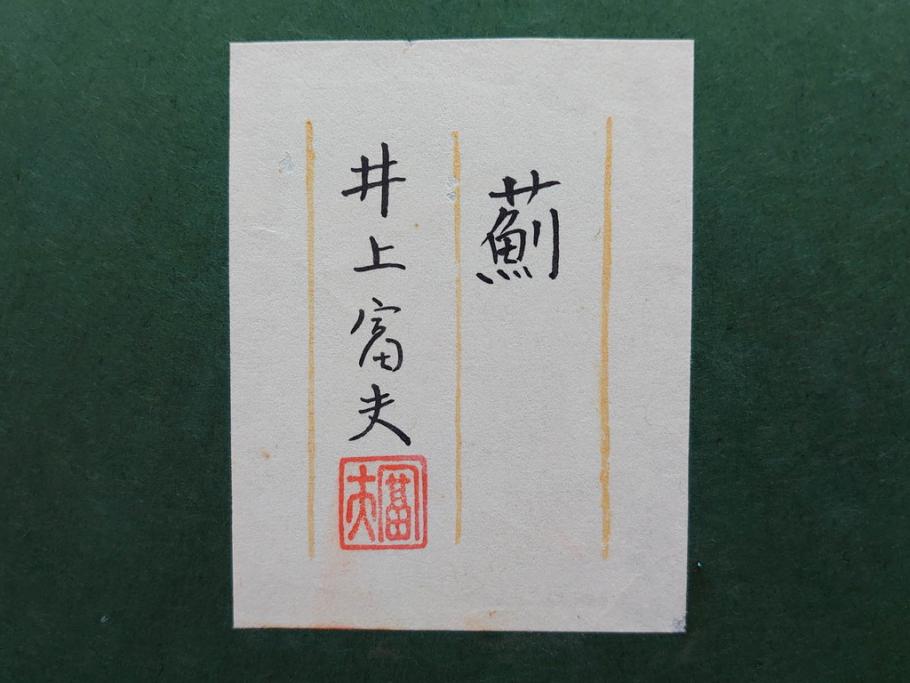 薊
井上富夫
富夫